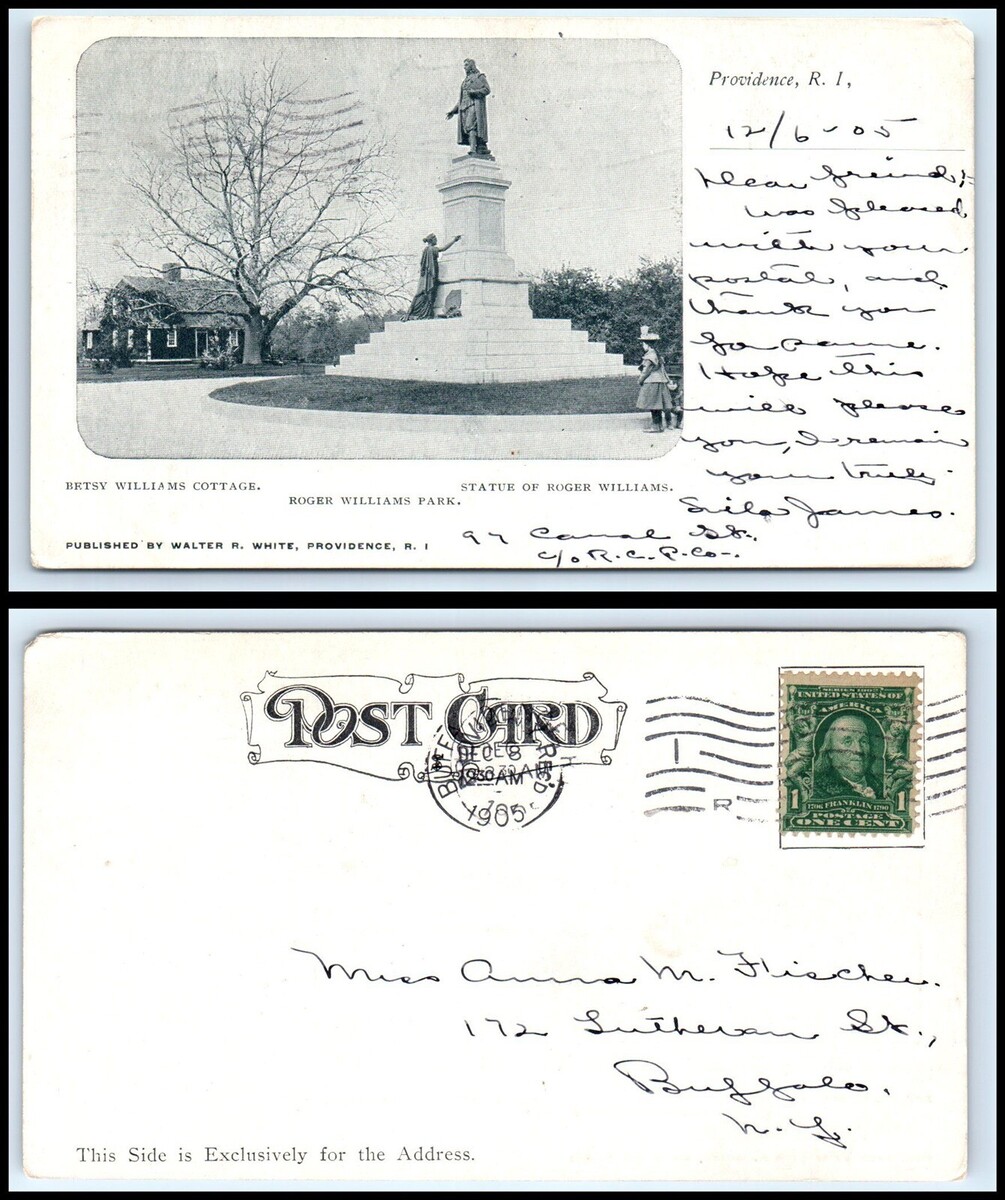 Providence, R. I,
12/6-05
Dear Freind;-
was pleased
with your
postal, and
thank you
for same.
Hope this
will please
you, I remain
your truly
James.
97 Canal St.,
c/o R. C. P. Co-.
BETSY WILLIAMS COTTAGE.
STATUE OF ROGER WILLIAMS.
ROGER WILLIAMS PARK.
PUBLISHED BY WALTER R. WHITE, PROVIDENCE, R. I
POST CARD
DEC 8
930AM
1905
REC'D
R
SERIES 1902
UNITED STATES OF
AMERICA
1 1706 FRANKLIN 1790 1
POSTAGE
ONE CENT
Miss Anna M. Fischer.
172 Lutheran St.,
Buffalo.
N. Y.
This Side is Exclusively for the Address.